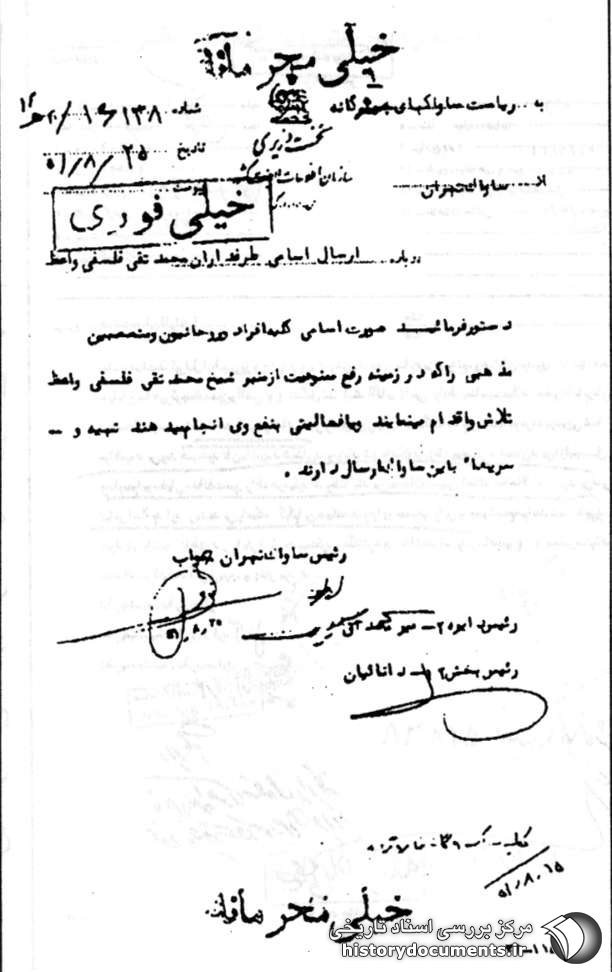 خیلی محرمانه
به ریاست ساواکهای بیشترگانه
شماره ۱۶۱۳۸/
نخست وزیری
تاریخ ۵۱/۸/۲۵
سازمان اطلاعات و امنیت کشور
از ساواک تهران
پیوست
خیلی فوری
درباره ارسال اسامی طرفداران محمد تقی فلسفی واعظ
دستور فرمائید صورت اسامی کلیه افراد و روحانیون و متعصبین
مذهبی را که در زمینه رفع ممنوعیت از منبر شیخ محمد تقی فلسفی واعظ
تلاش و اقدام مینمایند و یا فعالیتی بنفع وی انجام میدهند تهیه و --
سریعاً باین ساواک ارسال دارند.
رئیس ساواک تهران
۵۱/۸/۲۵
رئیس دایره ۲ـ
رئیس بخش ۲ـ دانائیان
۵۱/۸/۱۵
خیلی محرمانه
مرکز بررسی اسناد تاریخی
historydocuments.ir